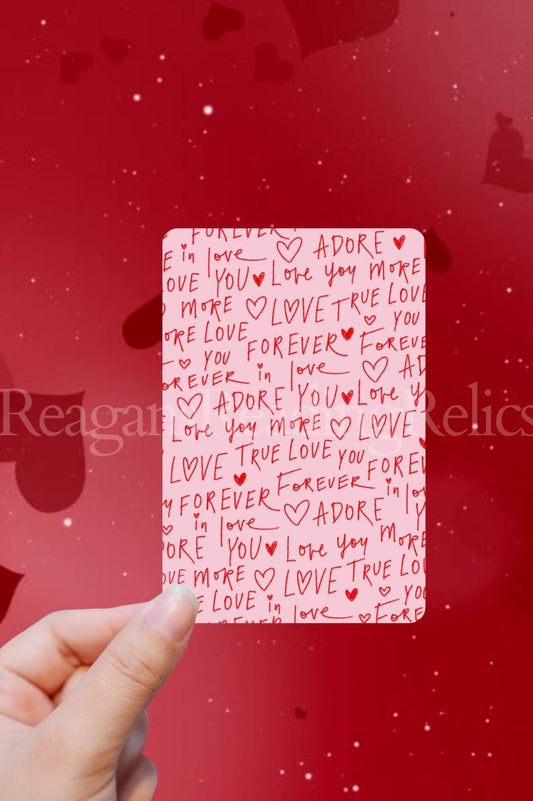 FOREVER
E in love ♡ ADORE ♥
OVE YOU ♥ Love you MORE
MORE ♡ LOVE TRUE LOVE
ORE LOVE ♥ ♡ YOU
♡ YOU FOREVER FOREVER
OREVER in love ♡ AD
♡ ADORE YOU ♥ Love y
Love you MORE ♡ LOVE
LOVE TRUE LOVE YOU
FOREVER FOREVER FOREV
in love ♡ ADORE in lo
DORE YOU ♥ Love you MORE
OVE MORE ♡ LOVE TRUE LOVE
E LOVE in love ♡ YOU
FOREVER FORE
Reagan ReadingRelics